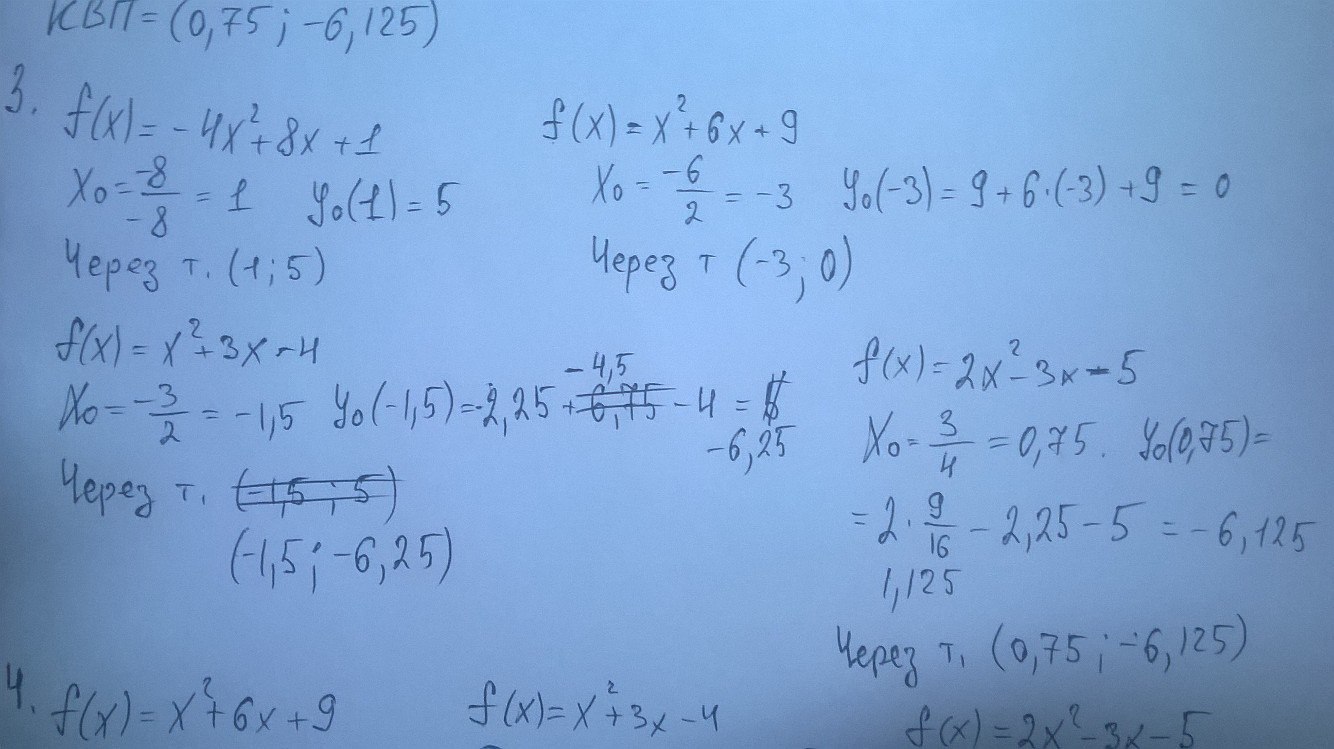 КВП = (0,75 ; -6,125)
3.
f(x) = -4x²+8x+1
x₀ = -8/-8 = 1 y₀(1) = 5
Через т. (1 ; 5)
f(x) = x²+6x+9
x₀ = -6/2 = -3 y₀(-3) = 9+6·(-3)+9 = 0
Через т (-3 ; 0)
f(x) = x²+3x-4
-4,5
x₀ = -3/2 = -1,5 y₀(-1,5) = 2,25 + 6,75 - 4 =
-6,25
Через т. (-1,5 ; 5)
(-1,5 ; -6,25)
f(x) = 2x²-3x-5
x₀ = 3/4 = 0,75. y₀(0,75) =
= 2·9/16 - 2,25 - 5 = -6,125
1,125
Через т. (0,75 ; -6,125)
4.
f(x) = x²+6x+9
f(x) = x²+3x-4
f(x) = 2x²-3x-5